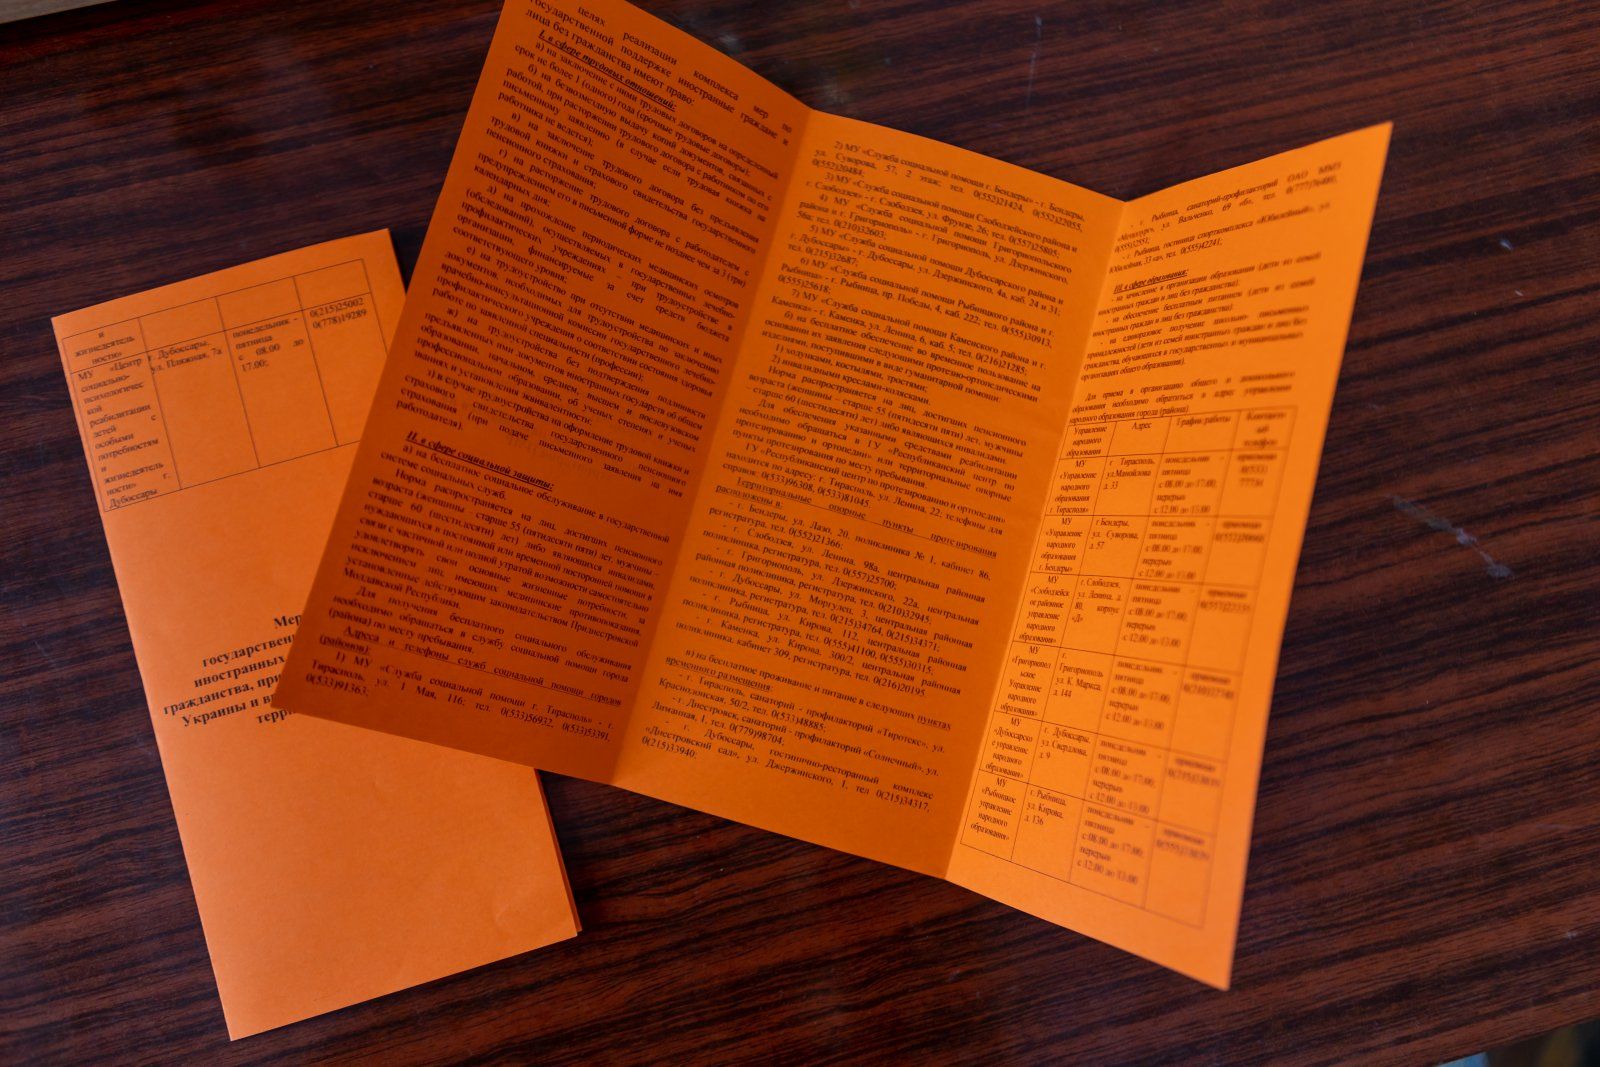 и
жизнедеятель
ности»
МУ «Центр
социально-
психологичес
кой
реабилитации
детей с
особыми
потребностям
и
жизнедеятель
ности» г.
Дубоссары
г. Дубоссары,
ул. Пляжная, 7а
понедельник -
пятница
с 08.00 до
17.00;
0(215)25002
0(778)19289
Мер
государственн
иностранных
гражданства, при
Украины и в
терр
целях реализации комплекса мер по
государственной поддержке иностранные граждане и
лица без гражданства имеют право:
I. в сфере трудовых отношений:
а) на заключение с ними трудовых договоров на определенный
срок не более 1 (одного) года (срочные трудовые договоры);
б) на безвозмездную выдачу копий документов, связанных с
работой, при расторжении трудового договора с работником по его
письменному заявлению (в случае если трудовая книжка на
работника не ведется);
в) на заключение трудового договора без предъявления
трудовой книжки и страхового свидетельства государственного
пенсионного страхования;
г) на расторжение трудового договора с работодателем с
предупреждением его в письменной форме не позднее чем за 3 (три)
календарных дня;
д) на прохождение периодических медицинских осмотров
(обследований), осуществляемых в государственных лечебно-
профилактических учреждениях – при трудоустройстве в
организации, финансируемые за счет средств бюджета
соответствующего уровня;
е) на трудоустройство при отсутствии медицинских и иных
документов, необходимых для трудоустройства по заключению
врачебно-консультационной комиссии государственного лечебно-
профилактического учреждения о соответствии состояния здоровья
работе по заявленной специальности (профессии);
ж) на трудоустройство без подтверждения подлинности
предъявленных ими документов иностранных государств об общем
образовании, начальном, среднем, высшем и послевузовском
профессиональном образовании, об ученых степенях и ученых
званиях и установления их эквивалентности;
з) в случае трудоустройства на оформление трудовой книжки и
страхового свидетельства государственного пенсионного
страхования при подаче письменного заявления на имя
работодателя).
II. в сфере социальной защиты:
а) на бесплатное социальное обслуживание в государственной
системе социальных служб.
Норма распространяется на лиц, достигших пенсионного
возраста (женщины - старше 55 (пятидесяти пяти) лет, мужчины –
старше 60 (шестидесяти) лет) либо являющихся инвалидами,
нуждающихся в постоянной или временной посторонней помощи в
связи с частичной или полной утратой возможности самостоятельно
удовлетворять свои основные жизненные потребности, за
исключением лиц, имеющих медицинские противопоказания,
установленные действующим законодательством Приднестровской
Молдавской Республики.
Для получения бесплатного социального обслуживания
необходимо обращаться в службу социальной помощи города
(района) по месту пребывания.
Адреса и телефоны служб социальной помощи городов
(районов):
1) МУ «Служба социальной помощи г. Тирасполь» - г.
Тирасполь, ул. 1 Мая, 116; тел. 0(533)56932, 0(533)53391,
0(533)91363;
2) МУ «Служба социальной помощи г. Бендеры» - г. Бендеры,
ул. Суворова, 57, 2 этаж; тел. 0(552)21424, 0(552)22055,
0(552)20484;
3) МУ «Служба социальной помощи Слободзейского района и
г. Слободзея» - г. Слободзея, ул. Фрунзе, 26; тел. 0(557)25805;
4) МУ «Служба социальной помощи Григориопольского
района и г. Григориополь» - г. Григориополь, ул. Дзержинского,
56а; тел. 0(210)32603;
5) МУ «Служба социальной помощи Дубоссарского района и
г. Дубоссары» - г. Дубоссары, ул. Дзержинского, 4а, каб. 24 и 31;
тел. 0(215)32687;
6) МУ «Служба социальной помощи Рыбницкого района и г.
Рыбницы» - г. Рыбница, пр. Победы, 4, каб. 222; тел. 0(555)30913,
0(555)25618;
7) МУ «Служба социальной помощи Каменского района и г.
Каменка» - г. Каменка, ул. Ленина, 6, каб. 5, тел. 0(216)21285;
б) на бесплатное обеспечение во временное пользование на
основании их заявления следующими протезно-ортопедическими
изделиями, поступившими в виде гуманитарной помощи:
1) ходунками, костылями, тростями;
2) инвалидными креслами-колясками.
Норма распределяется на лиц, достигших пенсионного
возраста (женщины – старше 55 (пятидесяти пяти) лет, мужчины
старше 60 (шестидесяти) лет) либо являющихся инвалидами.
Для обеспечения указанными средствами реабилитации
необходимо обращаться в ГУ «Республиканский центр по
протезированию и ортопедии» или территориальные опорные
пункты протезирования по месту пребывания.
ГУ «Республиканский центр по протезированию и ортопедии»
находится по адресу: г. Тирасполь, ул. Ленина, 22, телефоны для
справок 0(533)96308, 0(533)81045.
Территориальные опорные пункты протезирования
расположены в:
- г. Бендеры, ул. Лазо, 20, поликлиника № 1, кабинет 86,
регистратура, тел. 0(552)21366;
- г. Слободзея, ул. Ленина, 98а, центральная районная
поликлиника, регистратура, тел. 0(557)25700;
- г. Григориополь, ул. Дзержинского, 22а, центральная
районная поликлиника, регистратура, тел. 0(210)32945;
- г. Дубоссары, ул. Моргулец, 3, центральная районная
поликлиника, регистратура, тел. 0(215)34764, 0(215)34371;
- г. Рыбница, ул. Кирова, 112, центральная районная
поликлиника, регистратура, тел. 0(555)41100, 0(555)30315;
- г. Каменка, ул. Кирова, 300/2, центральная районная
поликлиника, кабинет 309, регистратура, тел. 0(216)20195.
в) на бесплатное проживание и питание в следующих пунктах
временного размещения:
- г. Тирасполь, санаторий - профилакторий «Тиротекс», ул.
Краснодонская, 50/2, тел. 0(533)48885;
- г. Днестровск, санаторий - профилакторий «Солнечный», ул.
Лиманная, 1, тел. 0(779)98704,
- г. Дубоссары, гостинично-ресторанный комплекс
«Днестровский сад», ул. Джержинского, 1, тел 0(215)34317,
0(215)33940;
- г. Рыбница, санаторий-профилакторий ОАО ММЗ
«Металлург», ул. Вальченко, 69 «б», тел.
0(555)32551;
- г. Рыбница, гостиница спорткомплекса «Юбилейный», ул.
Юбилейная, 33 «а», тел. 0(555)42241;
III. в сфере образования:
- на зачисление в организации образования (дети из семей
иностранных граждан и лиц без гражданства);
- на обеспечение бесплатным питанием (дети из семей
иностранных граждан и лиц без гражданства)
- на единоразовое получение школьно - письменных
принадлежностей (дети из семей иностранных граждан и лиц без
гражданства, обучающихся в государственных и муниципальных
организациях общего образования).
Для приема в организацию общего и дошкольного
образования необходимо обратиться в адрес управления
народного образования города (района)
Управление
народного
образования
Адрес
График работы
МУ
«Управление
народного
образования
г. Тирасполя»
г Тирасполь,
ул.Манойлова
д. 33
понедельник -
пятница
с 08.00 до 17.00;
перерыв
с 12.00 до 13.00
МУ
«Управление
народного
образования
г. Бендеры»
г Бендеры,
ул. Суворова,
д. 57
понедельник -
пятница
с 08.00 до 17.00;
перерыв
с 12.00 до 13.00
МУ
«Слободзейск
ое районное
управление
народного
образования»
г. Слободзея,
ул. Ленина, д.
80, корпус
«Д»
понедельник -
пятница
с 08.00 до 17.00;
перерыв
с 12.00 до 13.00
МУ
«Григориопол
ьское
Управление
народного
образования»
г.
Григориополь
ул. К. Маркса,
д. 144
понедельник -
пятница
с 08.00 до 17.00;
перерыв
с 12.00 до 13.00
МУ
«Дубоссарско
е управление
народного
образования»
г. Дубоссары,
ул. Свердлова,
д. 9
понедельник -
пятница
с 08.00 до 17.00;
перерыв
с 12.00 до 13.00
МУ
«Рыбницкое
управление
народного
образования»
г. Рыбница,
ул. Кирова,
д. 136
понедельник -
пятница
с 08.00 до 17.00;
перерыв
с 12.00 до 13.00